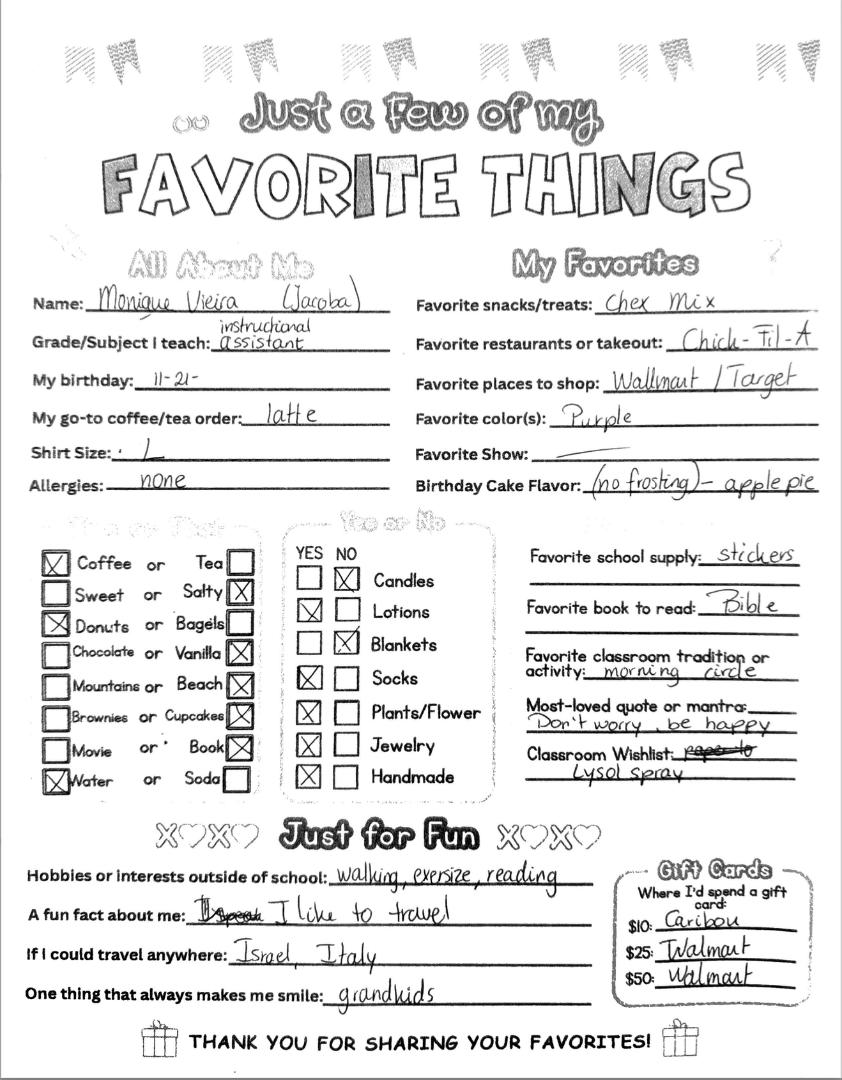 Just a Few of my
FAVORITE THINGS
All About Me
Name: Monique Vieira (Jacoba)
Grade/Subject I teach: instructional assistant
My birthday: 11-21-
My go-to coffee/tea order: latte
Shirt Size: L
Allergies: none
My Favorites
Favorite snacks/treats: Chex Mix
Favorite restaurants or takeout: Chick-Fil-A
Favorite places to shop: Wallmart / Target
Favorite color(s): Purple
Favorite Show:
Birthday Cake Flavor: (no frosting) - apple pie
This or That
Coffee or Tea
Sweet or Salty
Donuts or Bagels
Chocolate or Vanilla
Mountains or Beach
Brownies or Cupcakes
Movie or Book
Water or Soda
Yes or No
YES NO
Candles
Lotions
Blankets
Socks
Plants/Flower
Jewelry
Handmade
Favorite school supply: stickers
Favorite book to read: Bible
Favorite classroom tradition or
activity: morning circle
Most-loved quote or mantra:
Don't worry, be happy
Classroom Wishlist:
Lysol spray
XOXO Just for Fun XOXO
Hobbies or interests outside of school: walking, exersize, reading
A fun fact about me: I like to travel
If I could travel anywhere: Israel, Italy
One thing that always makes me smile: grandkids
Gift Cards
Where I'd spend a gift
card:
$10: Caribou
$25: Walmart
$50: Walmart
THANK YOU FOR SHARING YOUR FAVORITES!